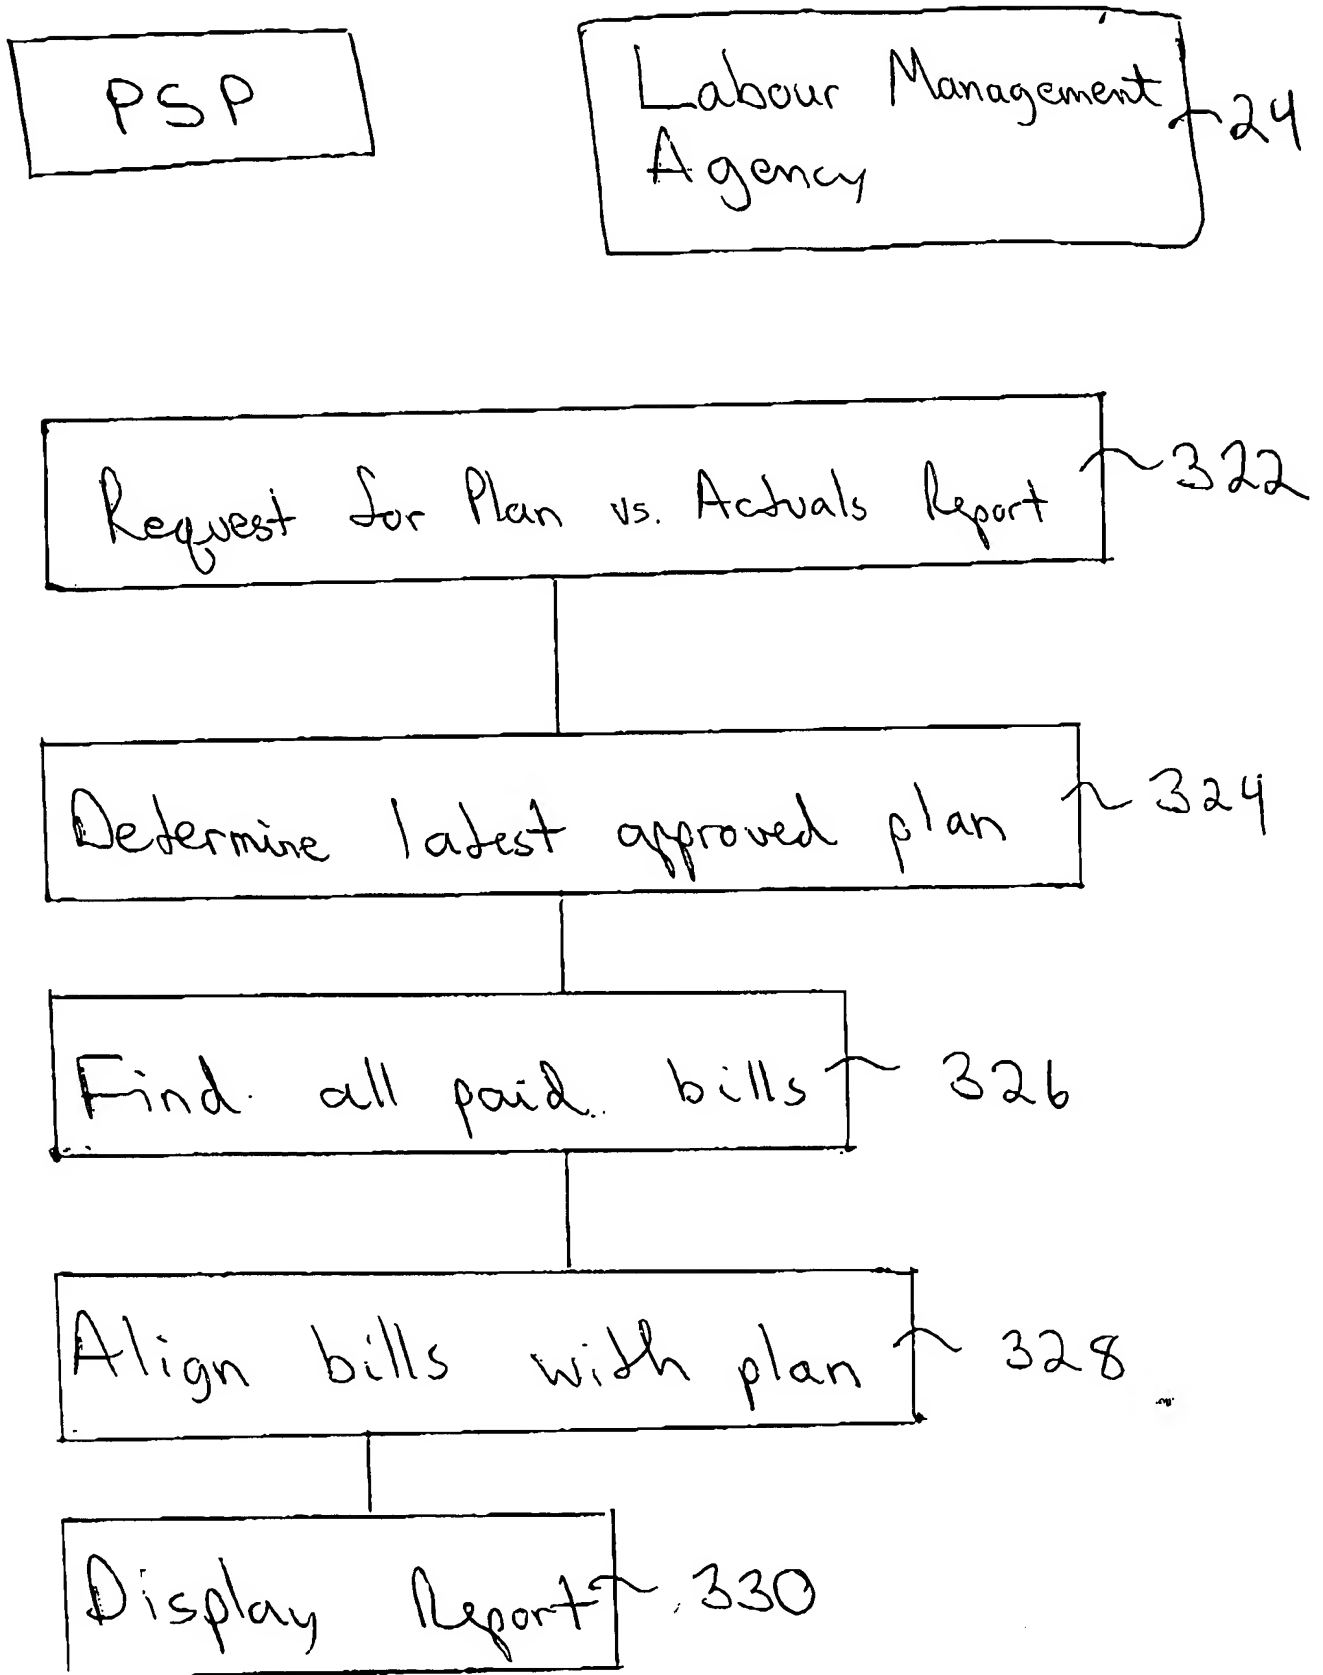 PSP
Labour Management
Agency
24
Request for Plan vs. Actuals Report
322
Determine latest approved plan
324
Find all paid bills
326
Align bills with plan
328
Display Report
330